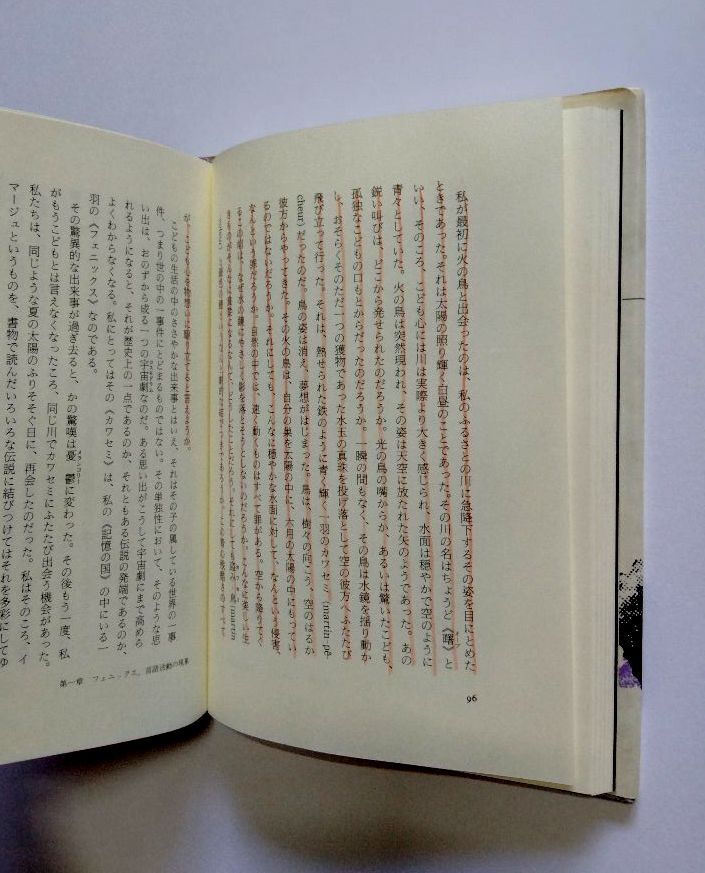 私が最初に火の鳥と出会ったのは、私のふるさとの川に急降下するその姿を目にとめた
ときであった。それは太陽の照り輝く白昼のことであった。その川の名はちょうど《曙》と
オーブ
いい、そのころ、こども心には川は実際より大きく感じられ、水面は穏やかで空のように
青々としていた。火の鳥は突然現われ、その姿は天空に放たれた矢のようであった。あの
鋭い叫びは、どこから発せられたのだろうか。光の鳥の嘴からか、あるいは驚いたこども、
孤独なこどもの口もとからだったのだろうか。一瞬の間もなく、その鳥は水鏡を揺り動か
し、おそらくそのただ一つの獲物であった水玉の真珠を投げ落として空の彼方へふたたび
飛び立って行った。それは、熱せられた鉄のように青く輝く一羽のカワセミ(martin-pê-
cheur)だったのだ。鳥の姿は消え、夢想がはじまった。鳥は、樹々の向こう、空のはるか
彼方からやってきた。その火の鳥は、自分の巣を太陽の中に、六月の太陽の中にもってい
るのではないだろうか。それにしても、こんなに穏やかな水面に対して、なんという侵害、
なんという罪だろうか。自然の中では、速く動くものはすべて罪がある。空から降りてく
るこの鳥は、なぜ水の鏡にやさしく影を落とそうとしないのだろうか。こんなに美しい生
きものがそんなに
が、こども心を物想いに駆り立てると言えようか。
こどもの生活の中のささやかな出来事とはいえ、それはその子の属している世界の一事
件、つまり世の中の一事件にとどまるものではない。その単独性において、そのような思
い出は、おのずから成る一つの宇宙劇なのだ。ある思い出がこうして宇宙劇にまで高めら
れるようになると、それが歴史上の一点であるのか、それともある伝説の発端であるのか、
よくわからなくなる。私にとってはその《カワセミ》は、私の《記憶の国》の中にいる一
羽の《フェニックス》なのである。
その驚異的な出来事が過ぎ去ると、かの驚嘆は憂鬱に変わった。その後もう一度、私
メランコリー
がもうこどもとは言えなくなったころ、同じ川でカワセミにふたたび出会う機会があった。
私たちは、同じような夏の太陽のふりそそぐ日に、再会したのだった。私はそのころ、イ
マージュというものを、書物で読んだいろいろな伝説に結びつけてはそれを多彩にしてゆ
96
第一章 フェニックス、言語活動の現象